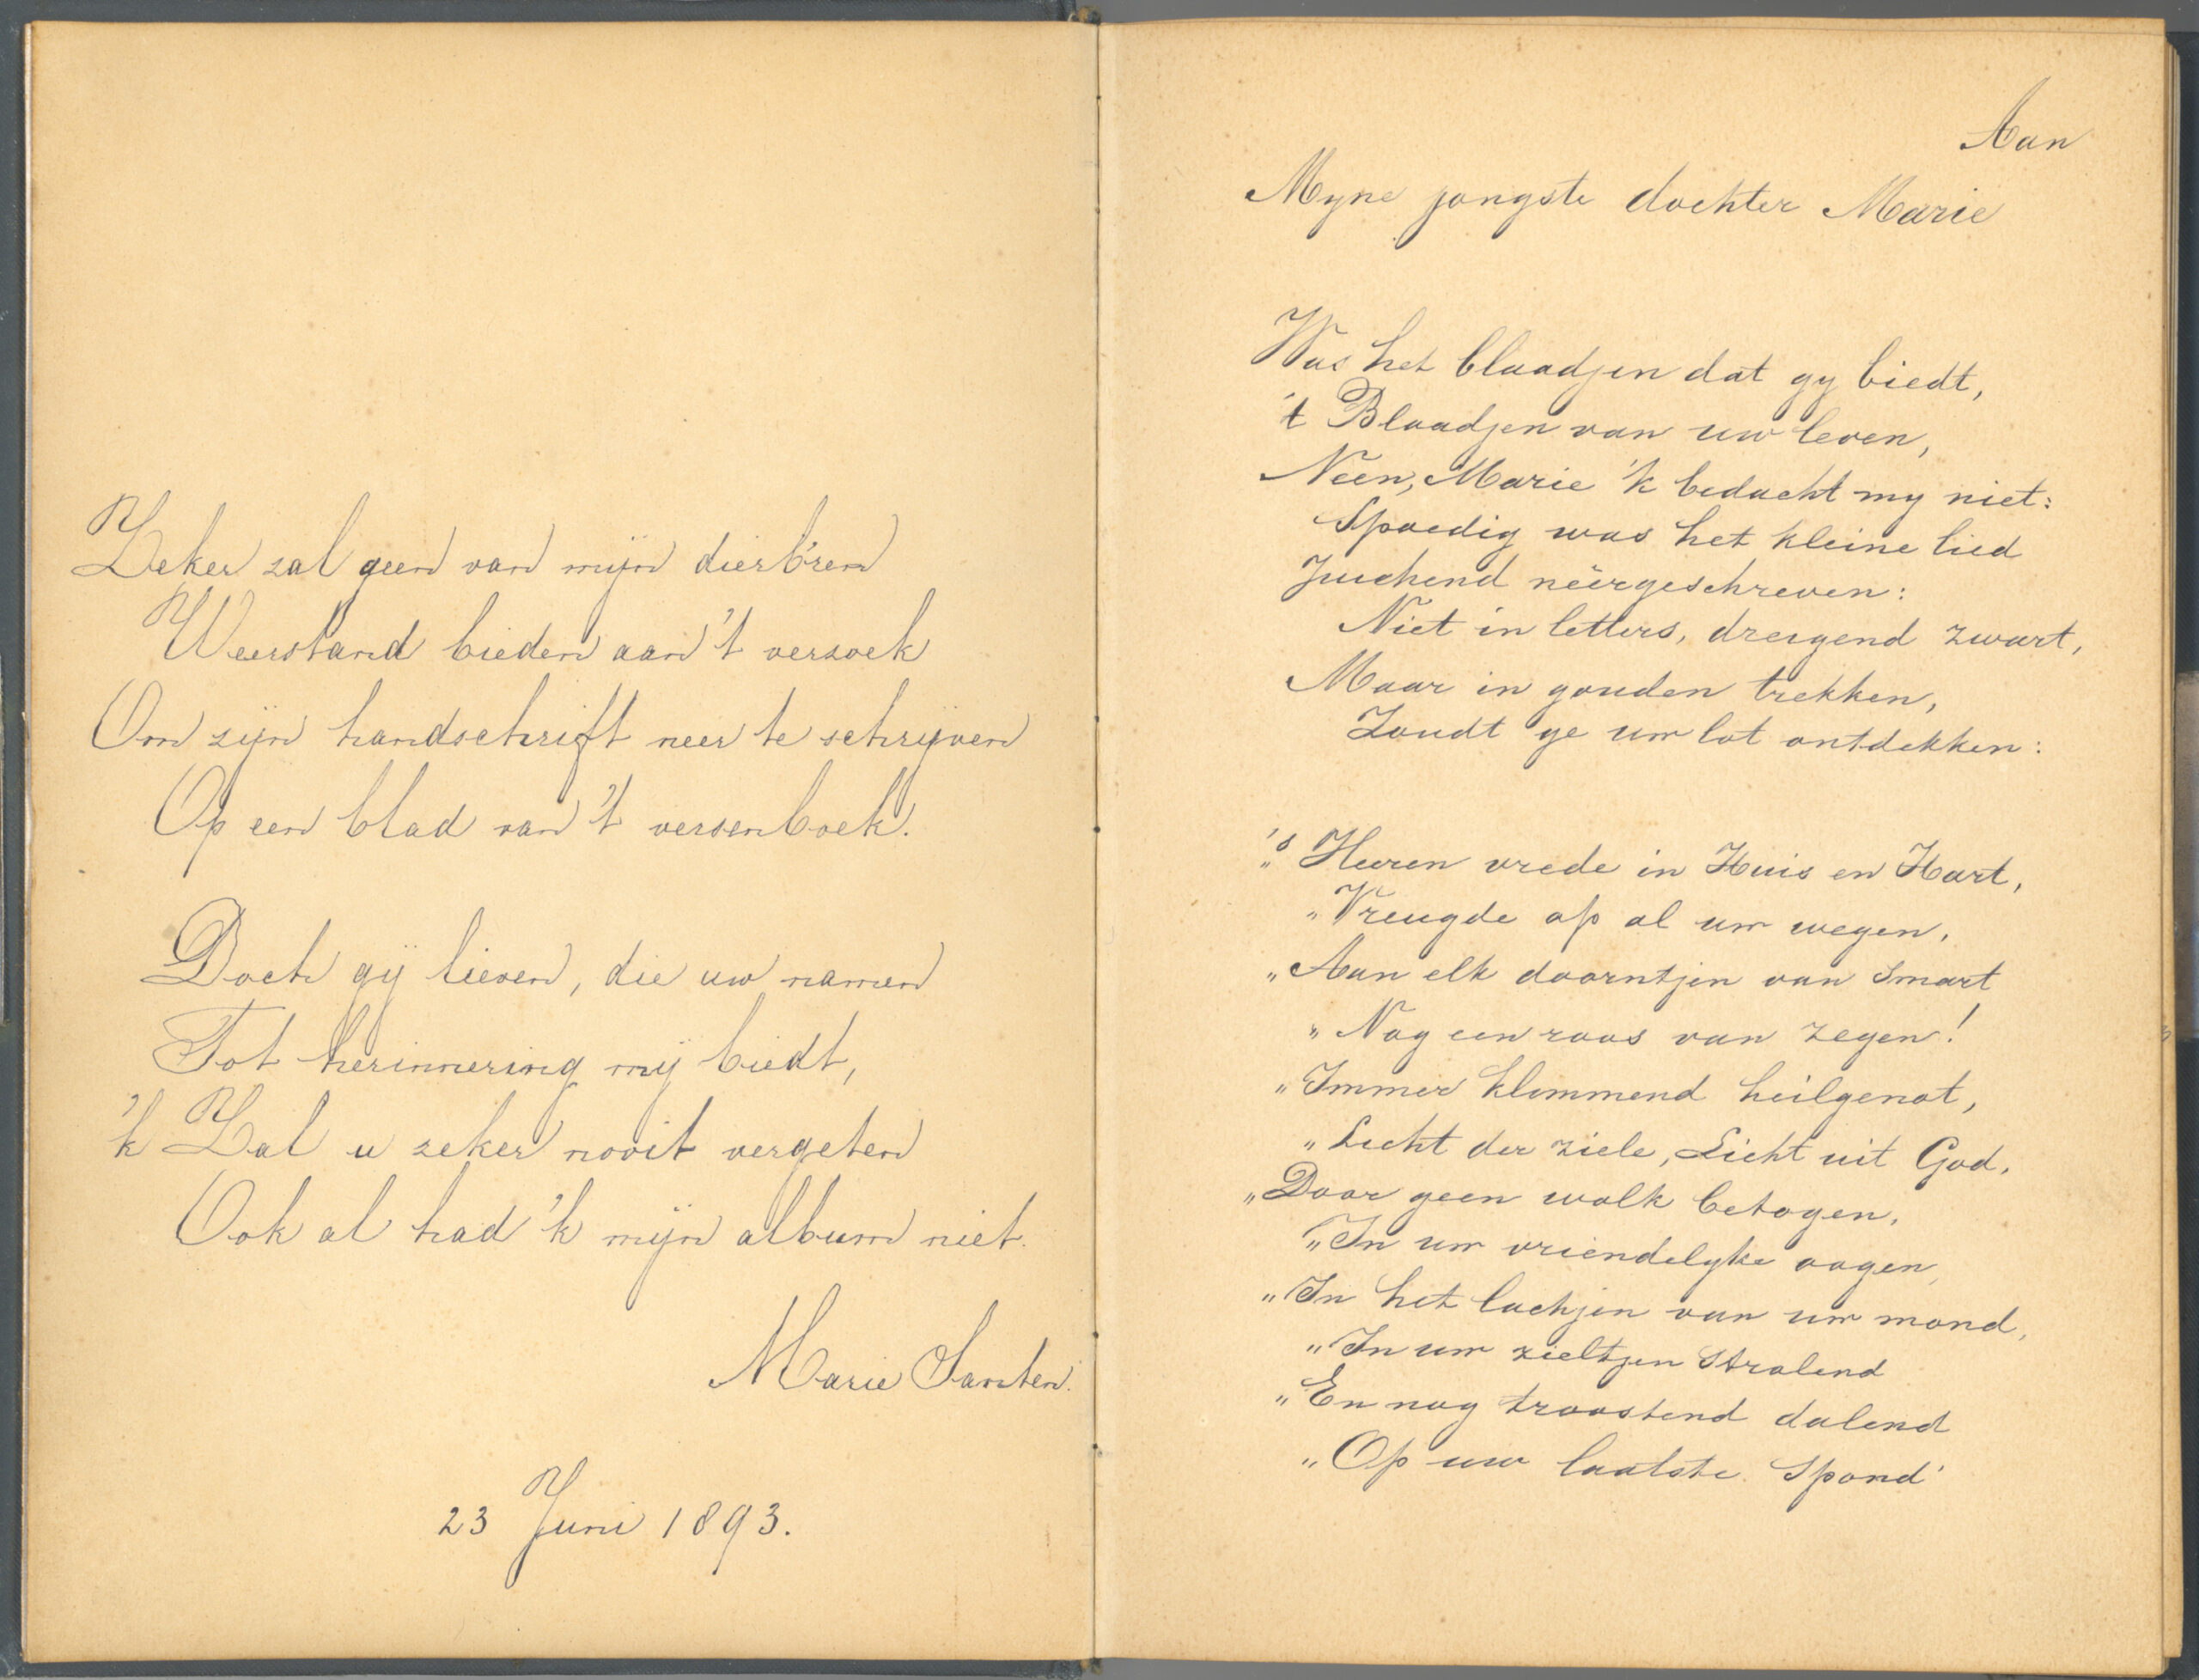 Zeker zal geen van mijn dierb'ren
Weerstand bieden aan 't verzoek
Om zijn handschrift neer te schrijven
Op een blad van 't versenboek.
Doch gij lieven, die uw namen
Tot herinnering mij biedt,
'k Zal u zeker nooit vergeten
Ook al had 'k mijn album niet.
Marie Santen.
23 Juni 1893.
Aan
Myne jongste dochter Marie
Was het blaadjen dat gy biedt,
't Blaadjen van uw leven,
Neen, Marie 'k bedacht my niet:
Spoedig was het kleine lied
Juichend neêrgeschreven:
Niet in letters, dreigend zwart,
Maar in gouden trekken,
Zoudt ge uw lot ontdekken:
„'s Heeren vrede in Huis en Hart,
„Vreugde op al uw wegen,
„Aan elk doorntjen van Smart
„Nog een roos van zegen!
„Immer klimmend heilgenot,
„Licht der ziele, Licht uit God,
„Door geen wolk betogen,
„In uw vriendelyke oogen,
„In het lachjen van uw mond,
„In uw zieltjen Stralend
„En nog troostend dalend
„Op uw laatste Spond'